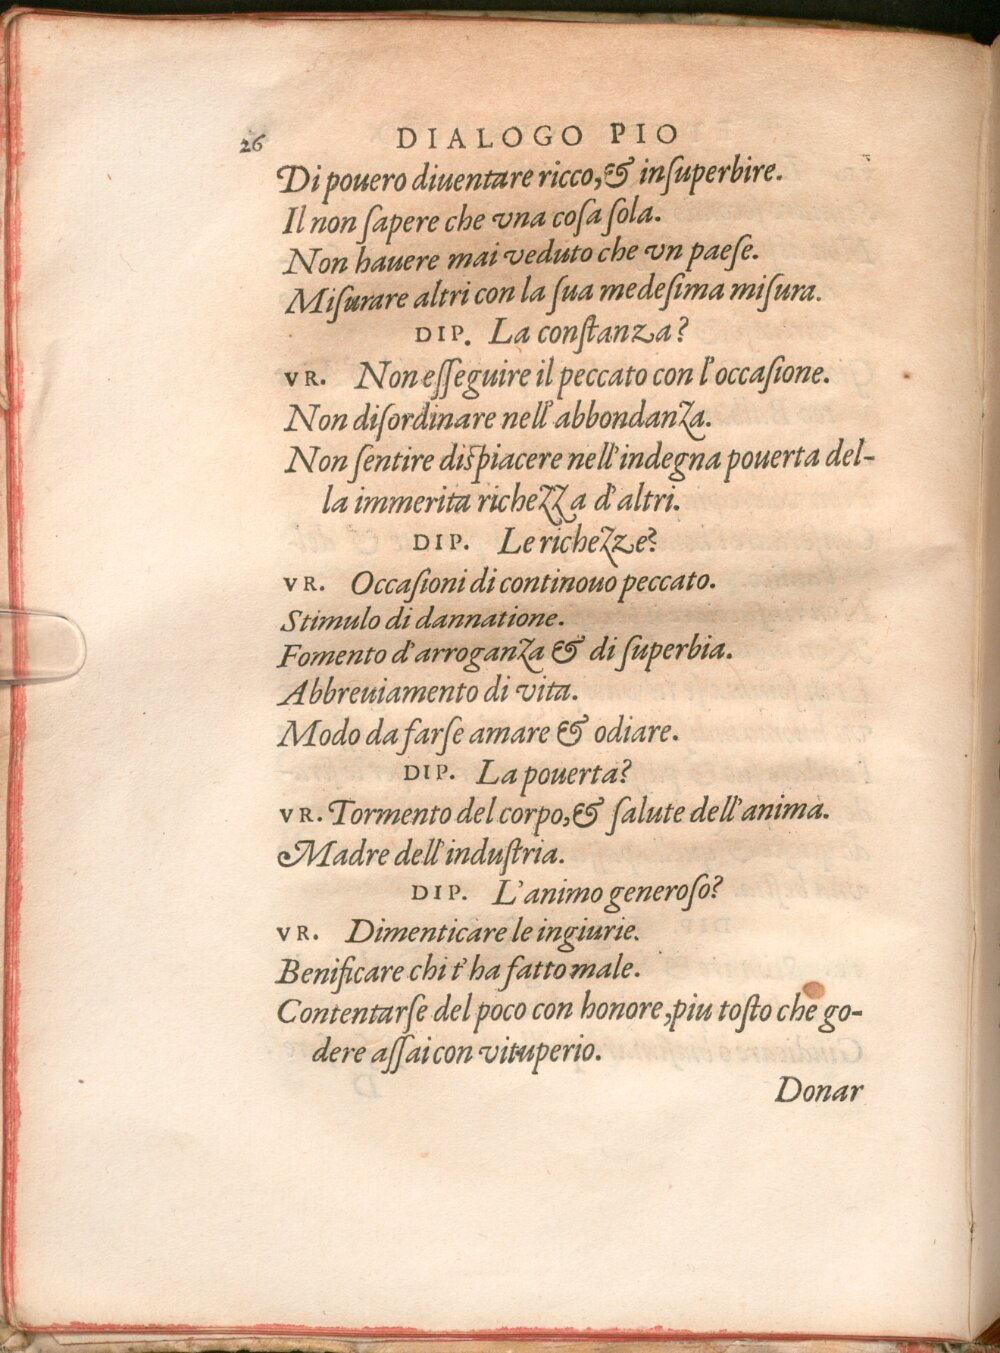 26 DIALOGO PIO
Di pouero diuentare ricco,& inſuperbire.
Il non ſapere che vna coſa ſola.
Non hauere mai veduto che vn paeſe.
Miſurare altri con la ſua medeſima miſura.
DIP. La conſtanza?
VR. Non eſſeguire il peccato con l'occaſione.
Non diſordinare nell'abbondanza.
Non ſentire diſpiacere nell'indegna pouerta del-
la immerita richezza d'altri.
DIP. Le richezze?
VR. Occaſioni di continouo peccato.
Stimulo di dannatione.
Fomento d'arroganza & di ſuperbia.
Abbreuiamento di vita.
Modo da farſe amare & odiare.
DIP. La pouerta?
VR. Tormento del corpo,& ſalute dell'anima.
Madre dell'induſtria.
DIP. L'animo generoſo?
VR. Dimenticare le ingiurie.
Benificare chi t'ha fatto male.
Contentarſe del poco con honore,piu toſto che go-
dere aſſai con vituperio.
Donar